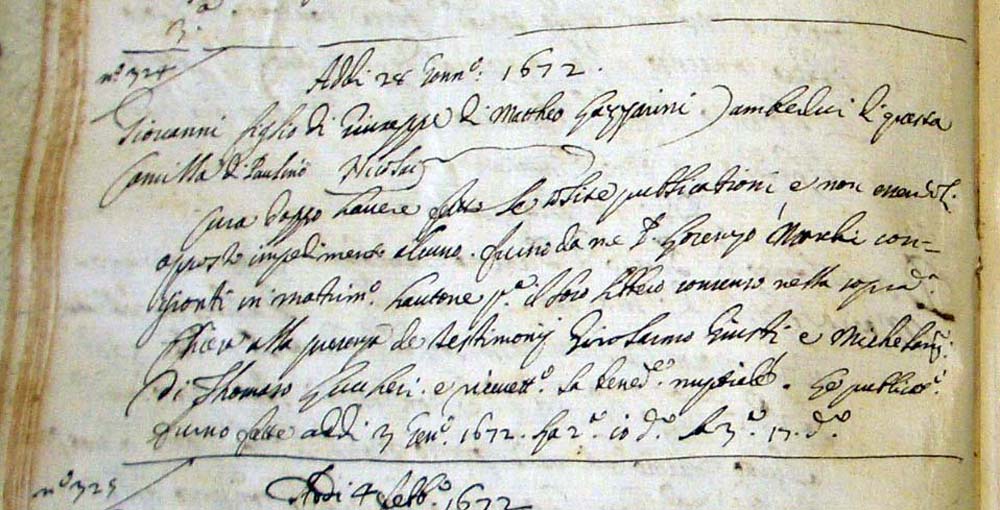 3.ª
nº 324
Addi 28 Genn.º 1672.
Giovanni figlio di Giuseppe di Matteo Gazzarini ) ambeduci di questa
Camilla di Paulino Nicolai
Cura doppo havere fatto le solite publicationi e non
opposto impedimento alcuno. furno da me P. Lorenzo con=
gionti in matrim.º hautone p.ª il loro consenso nella soprad.ª
Chiesa alla presenza de testimonij Girolamo Giusti e Michelang.
di Thomaso e ricevett.º la bened.e nuptiale. Le publicat.i
furno fatte addi 3 Gen.º 1672. La 2.ª 10 d.º la 3.ª 17. d.º
nº 325
Addi 4 febb.º 1672